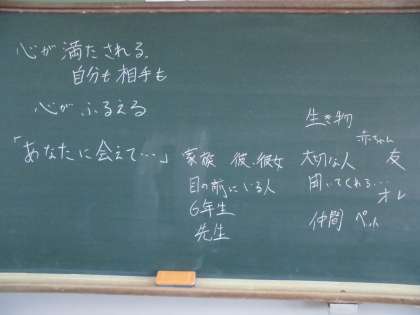 心が満たされる、
自分も相手も
心がふるえる
「あなたに会えて…」
家族 彼、彼女
目の前にいる人
6年生
先生
生き物
赤ちゃん
大切な人 友
聞いてくれる…
オレ
仲間 ペット